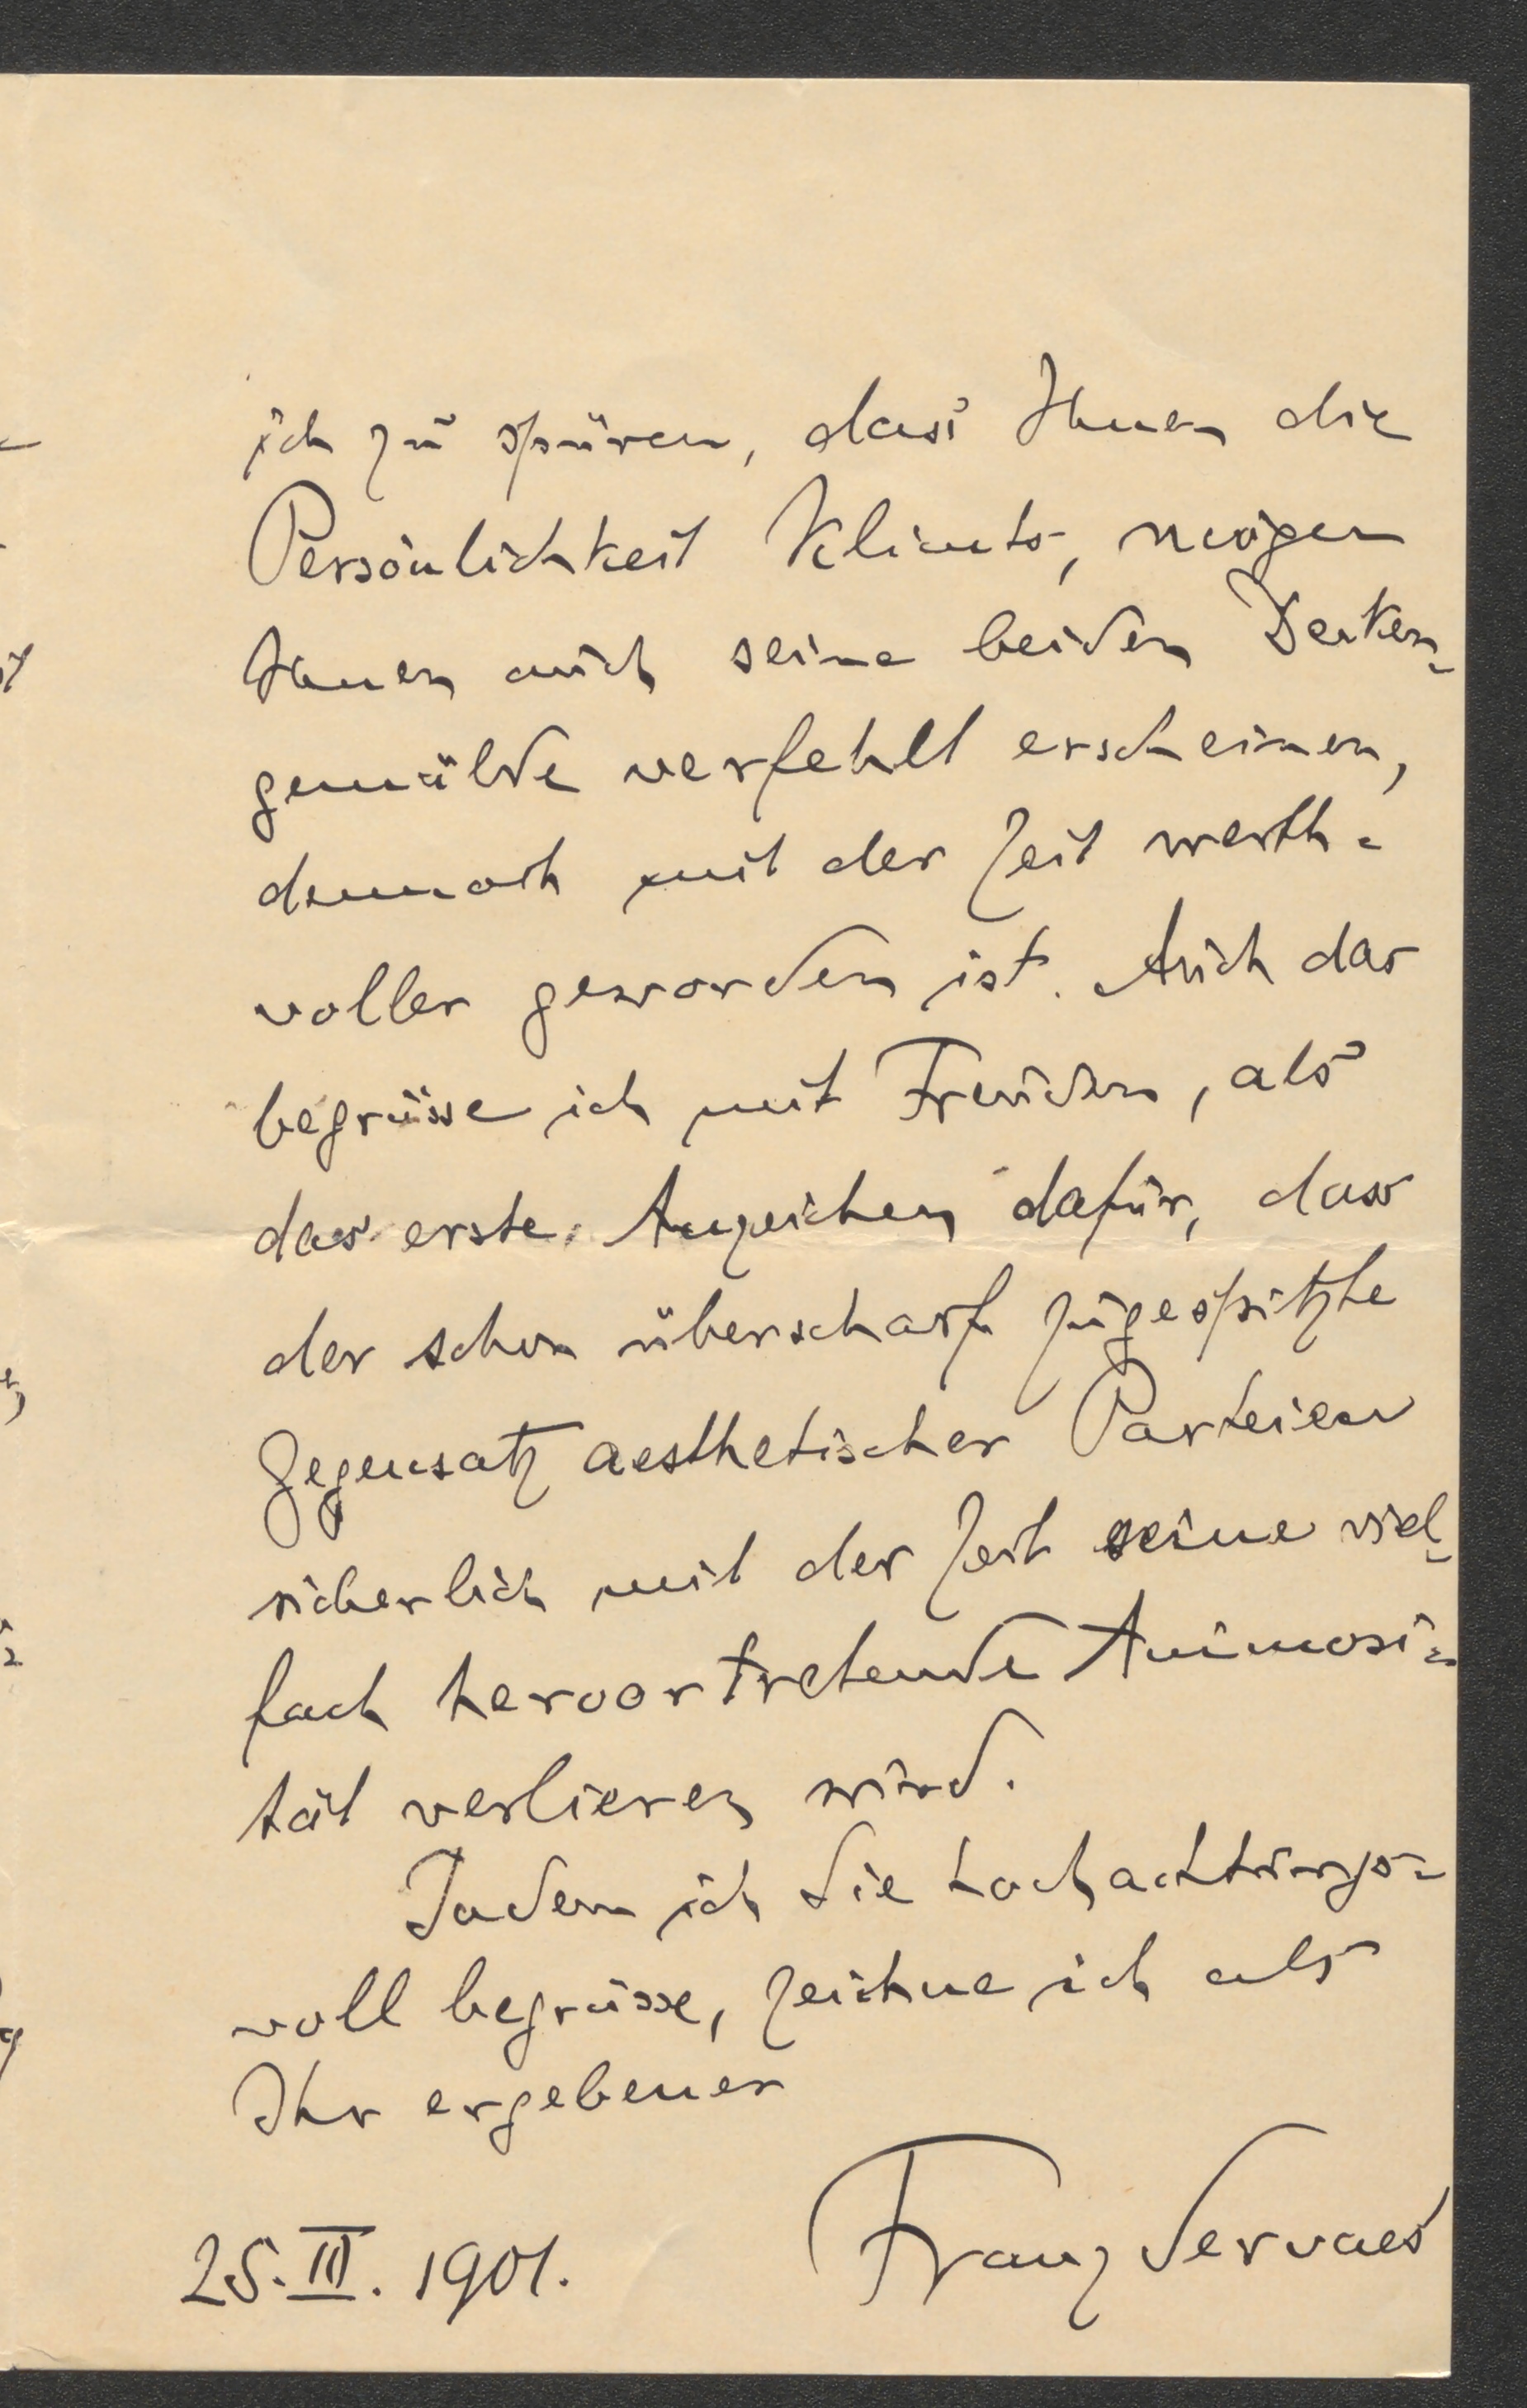 ich zu spüren, dass Ihnen die
Persönlichkeit Klimts, mögen
Ihnen auch seine beiden Decken-
gemälde verfehlt erscheinen,
dennoch mit der Zeit werth-
voller geworden ist. Auch das
begrüsse ich mit Freuden, als
das erste Anzeichen dafür, dass
der schon überscharf zugespitzte
Gegensatz aesthetischer Parteien
sicherlich mit der Zeit seine viel-
fach hervortretende Animosi-
tät verlieren wird.
Indem ich Sie hochachtungs-
voll begrüsse, zeichne ich als
Ihr ergebener
Franz Servaes
25. III. 1901.